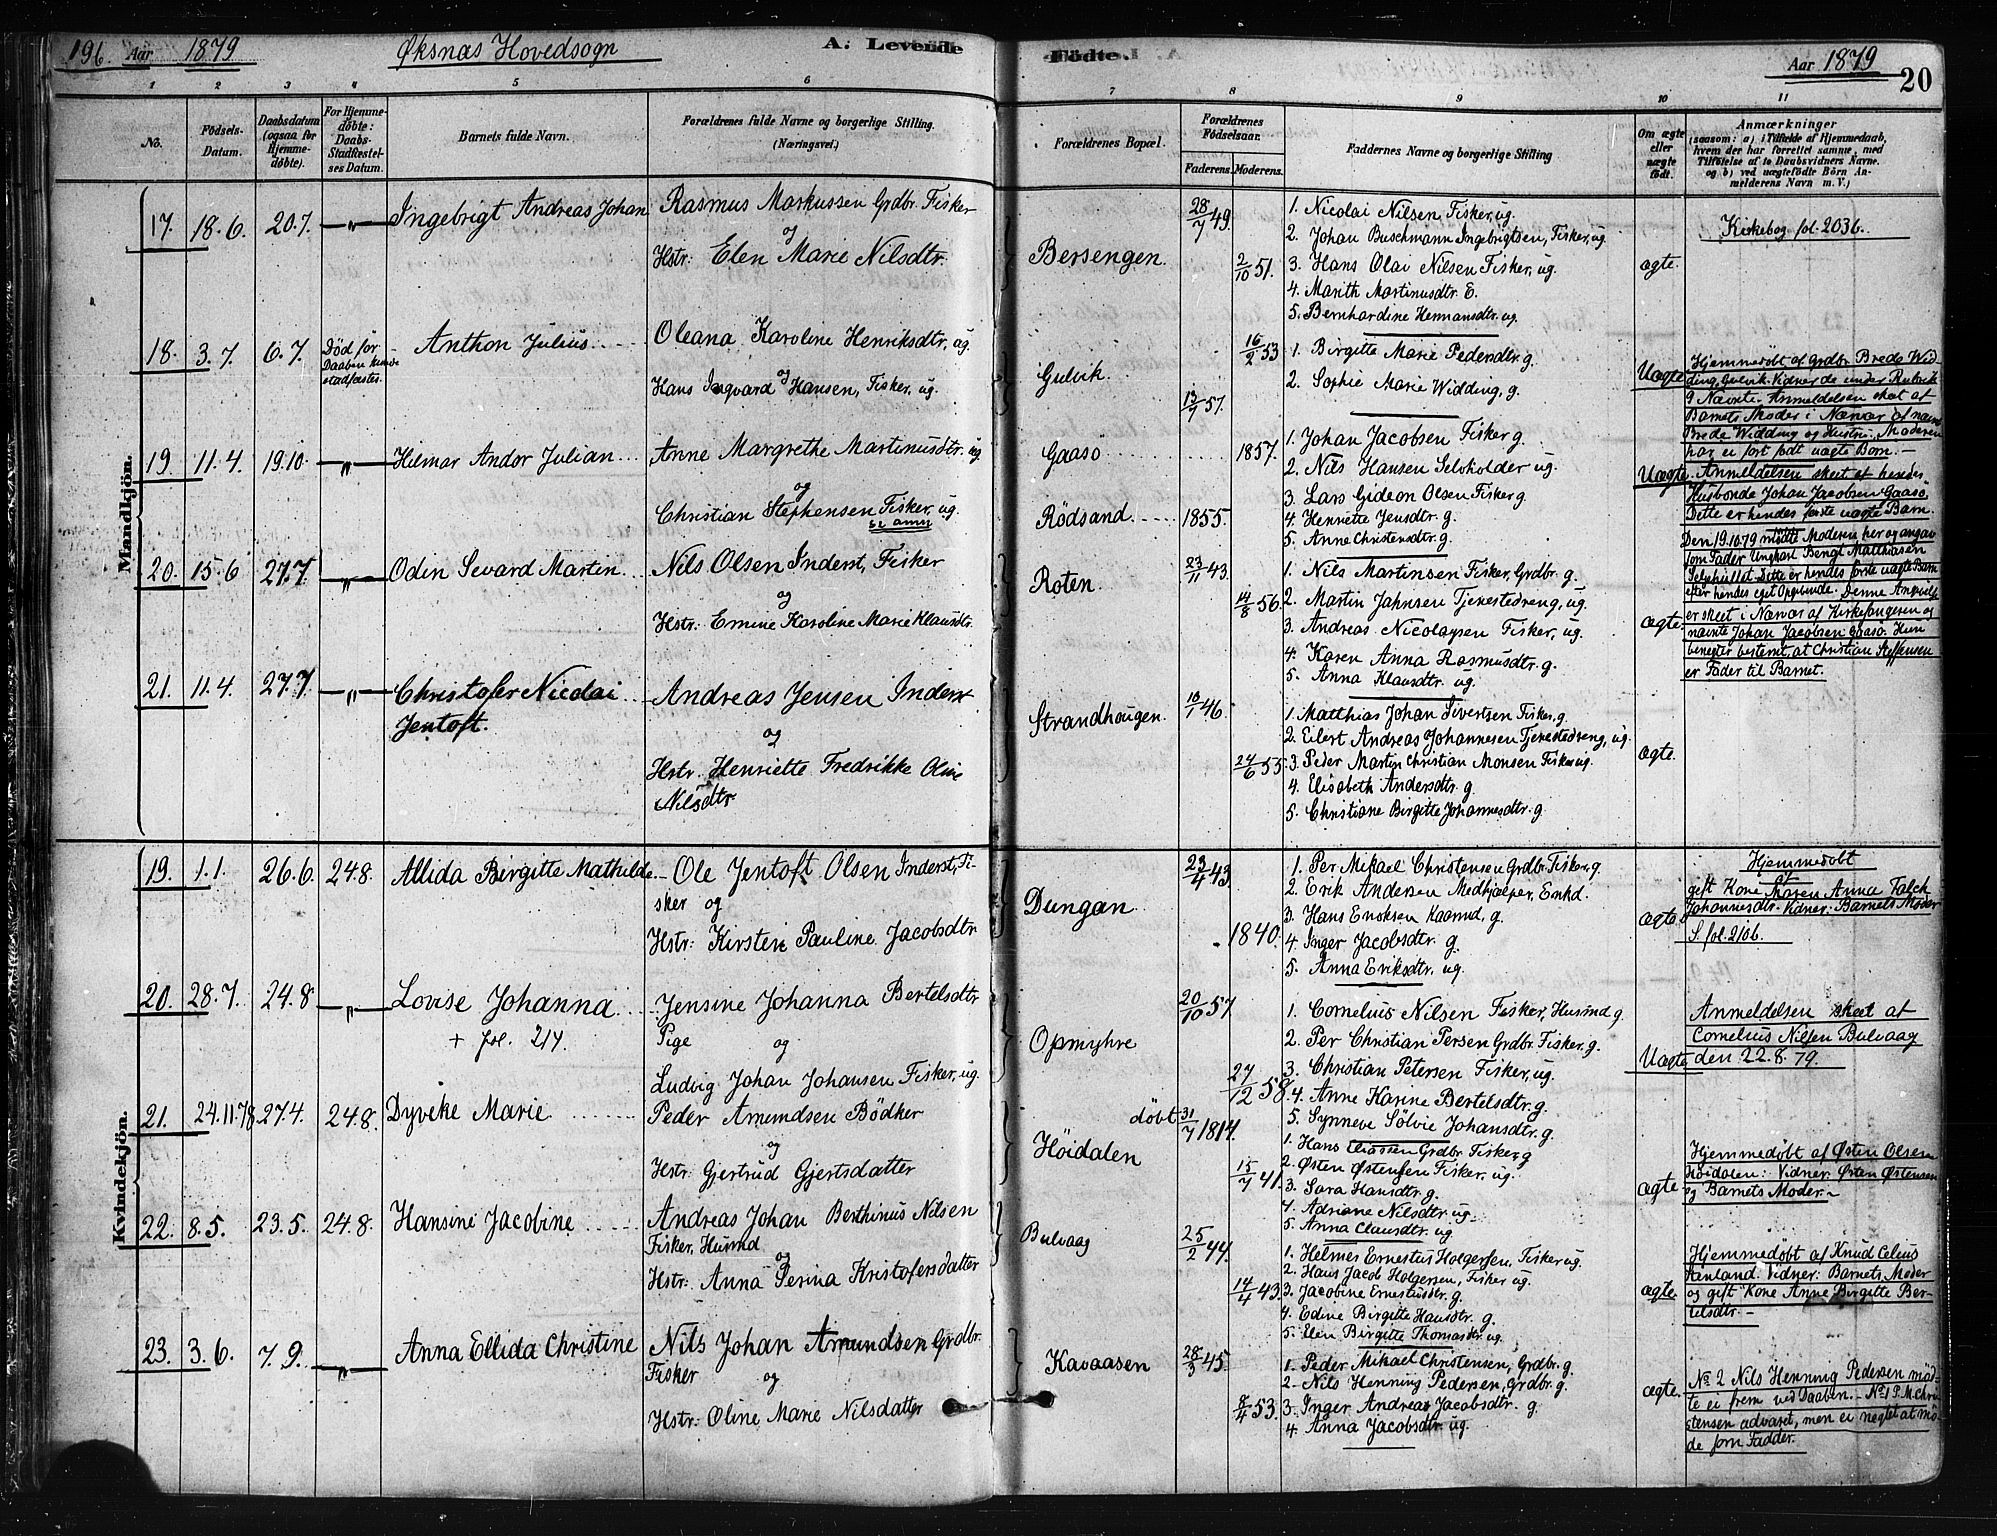 196. Aar 1879 Øksnæs Hovedsogn A. Levende Fødte. Aar 1879
20
1 2 3 4 5 6 7 8 9 10 11
No.
Födsels-Datum.
Daabsdatum (ogsaa for Hjemme-döbte).
For Hjemme-döbte: Daabs-Stadfæstel-ses Datum.
Barnets fulde Navn.
Forældrenes fulde Navne og borgerlige Stilling. (Næringsvei.)
Forældrenes Bopæl.
Forældrenes Fødselsaar.
Faderens. Moderens.
Faddernes Navne og borgerlige Stilling
Om ægte eller uægte födt.
Anmærkninger
(saasom: a) i Tilfælde af Hjemmedaab, hvem der har forrettet samme, med Tilföielse af to Daabsvidners Navne, og b) ved uægtefödte Börn An-melderens Navn m. V.)
Mandkjön.
17. 18.6. 20.7. —"— Ingebrigt Andreas Johan
Rasmus Markussen Grdbr. Fisker
og
Hstr: Elen Marie Nilsdtr.
Bersengen.
28/7 49.
2/10 51.
1. Nicolai Nilsen Fisker, ug.
2. Johan Buschmann Ingebrigtsen, Fisker, ug.
3. Hans Olai Nilsen Fisker, ug.
4. Marith Martinusdtr. E.
5. Bernhardine Hermansdtr. ug.
ægte.
Kirkebog fol. 203b.
18. 3.7. 6.7. Död för Daaben kunde stadfæstes.
Anthon Julius
Oleana Karoline Henriksdtr, ug.
og
Hans Ingvard Hansen, Fisker, ug.
Gulvik.
16/2 53
13/7 57.
1. Birgitte Marie Pedersdtr g.
2. Sophie Marie Widding, g.
Uægte
Hjemmedøbt af Grdbr. Brede Wid-
ding, Gulvik. Vidner de under Rubrik
9 Nævnte. Anmeldelsen skeet af
Barnets Moder i Nærvær af nævnte
Brede Widding og Hustru. Moderen
har ei fört födt uægte Børn.—
19. 11.4. 19.10 —"— Hilmar Andor Julian
Anne Margrethe Martinusdtr. ug
og
Christian Stephensen Fisker, ug.
Gaasø
Rødsand. 1855.
1857.
1. Johan Jacobsen Fisker g.
2. Nils Hansen Selvholder ug.
3. Lars Gideon Olsen Fisker g.
4. Henrette Jensdtr. g.
5. Anne Christensdtr. g.
Uægte
Anmeldelsen skeet af hendes
Husbonde Johan Jacobsen Gaasø.
Dette er hendes første uægte Barn.
Den 19.10.79 mødte Moderen her og angav
som Fader Ungkarl Bengt Matthiasen
Dette er hendes første uægte Barn
efter hendes eget Opgivende. Denne Angivelse
er skeet i Nærvær af Kirkesangeren og
nævnte Johan Jacobsen Gaasø. Hun
benegter bestemt, at Christian Steffensen
er Fader til Barnet.
20. 15.6 27.7 —"— Odin Sevard Martin
Nils Olsen Inderst, Fisker
og
Hstr: Ermine Karoline Marie Klausdtr.
Roten
23/11 43.
14/8 56.
1. Nils Martinsen Fisker, Grdbr. g.
2. Martin Jahnsen Tjenestedreng, ug.
3. Andreas Nicolaysen Fisker, ug.
4. Karen Anna Rasmusdtr. g.
5. Anna Klausdtr. ug.
ægte.
21. 11.4. 27.7 —"— Christofer Nicolai
Jentoft.
Andreas Jensen Inderst
og
Hstr. Henriette Fredrikke Oline
Nilsdtr
Strandhougen.
10/1 46.
24/6 55.
1. Matthias Johan Sivertsen Fisker, g.
2. Eilert Andreas Johannesen Tjenestedreng, ug.
3. Peder Martin Christian Monsen Fisker ug.
4. Elisabeth Andersdtr. g.
5. Christiane Birgitte Johannesdtr. g.
ægte.
Kvindekjön.
19. 1.1. 26.6. 24.8. Allida Birgitte Mathilde
Ole Jentoft Olsen Inderst, Fi-
sker og
Hstr: Kirsten Pauline Jacobsdtr.
Dungan.
23/4 43.
1840.
1. Per Mikael Christensen Grdbr. Fisker, g.
2. Erik Andersen Medhjælper, Enkd.
3. Hans Enoksen Kaarmd, g.
4. Inger Jacobsdtr. g.
5. Anna Eriksdtr. ug.
ægte.
Hjemmedøbt
af
gift Kone Maren Anna Falck
Johannesdtr. Vidner: Barnets Moder
S. fol. 210b.
20. 28.7. 24.8 —"— Lovise Johanna
+ fol. 214.
Jensine Johanna Bertelsdtr
Pige og
Ludvig Johan Johansen Fisker, ug.
Opmyhre
20/10 57
27/12 58.
1. Cornelius Nilsen Fisker, Husmd g.
2. Per Christian Persen Grdbr. Fisker, g.
3. Christian Petersen Fisker, ug.
4. Anne Karine Bertelsdtr. g.
5. Synneve Sølvie Johansdtr. g.
Uægte
Anmeldelsen skeet af
Cornelius Nilsen Bulvaag
den 22.8.79.
21. 24.11.78. 27.4. 24.8. Dyveke Marie
Peder Amundsen Bødker
og
Hstr: Gjertrud Gjertsdatter
Høidalen
døbt 31/7 1814.
15/7 41.
1. Hans Clausen Grdbr. Fisker g
2. Østen Østensen Fisker, ug.
3. Sara Hansdtr. g.
4. Adriane Nilsdtr. ug.
5. Anna Clausdtr. ug.
ægte.
Hjemmedøbt af Østen Olsen
Høidalen: Vidner: Østen Østensen
og Barnets Moder.—
22. 8.5. 23.5. 24.8. Hansine Jacobine
Andreas Johan Berthinus Nilsen
Fisker, Husmd
og
Hstr: Anna Perina Kristofersdatter
Bulvaag
25/2 44.
14/4 43.
1. Helmer Ernestus Holgersen, Fisker ug.
2. Hans Jacob Holgersen, Fisker ug.
3. Jacobine Ernestusdtr. g.
4. Edine Birgitte Hansdtr. g.
5. Elen Birgitte Thomasdtr. ug.
ægte.
Hjemmedøbt af Knud Celius
Aanland. Vidner: Barnets Moder
og gift Kone Anne Birgitte Ber-
telsdtr.—
23. 3.6. 7.9. —"— Anna Ellida Christine
Nils Johan Amundsen Grdbr.
Fisker og
Hstr: Oline Marie Nilsdatter
Kavaasen
28/3 45.
8/4 53.
1. Peder Mikael Christensen, Grdbr. g.
2. Nils Henning Pedersen, Grdbr. g.
3. Inger Andrea Jacobsdtr. g
4. Anna Jacobsdtr. ug.
ægte.
No 2 Nils Henning Pedersen mød-
te ei frem ved Daaben.— No 1 P. M. Chri-
stensen advaret, men ei negtet at mø-
de som Fadder.